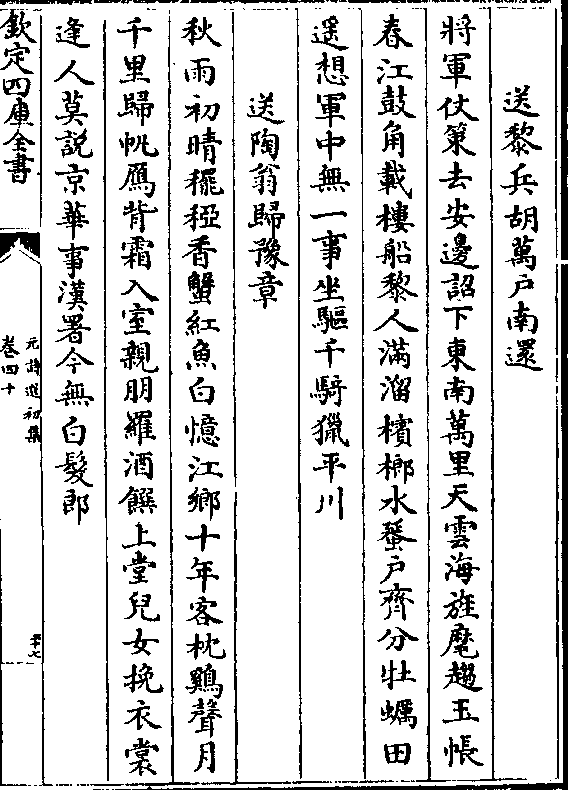 送黎兵胡萬戶南還
將軍仗策去安邊詔下東南萬里天雲海旌麾趨玉帳
春江鼓角載樓船黎人滿溜檳榔水蜑戶齊分牡蠣田
遥想軍中無一事坐驅千騎獵平川
送陶翁歸豫章
秋雨初晴䆉稏香蟹紅魚白憶江鄉十年客枕鷄聲月
千里歸帆鴈背霜入室親朋羅酒饌上堂兒女挽衣裳
逢人莫説京華事漢署今無白髮郎
欽定四庫全書
元詩選初集
卷四十